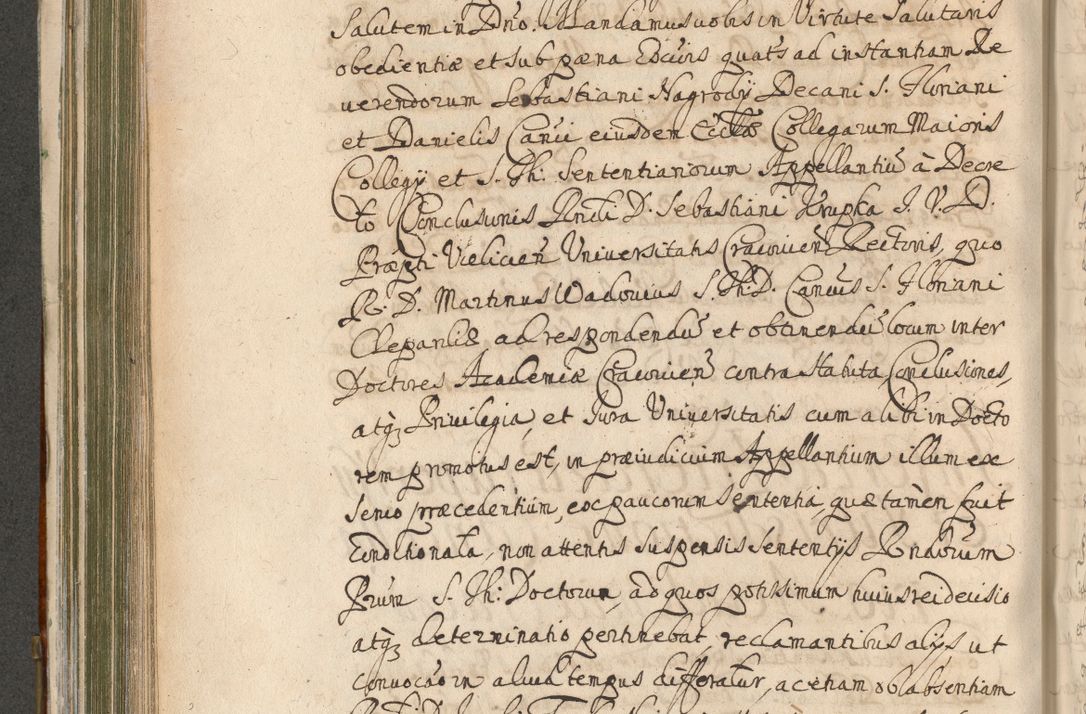 Salutem in Dno. Mandamus vobis in Virtute Salutaris
obedientiæ et sub pæna Excuīs quats ad instantiam Re
verendorum Sebastiani Nagrody Decani S. Floriani
et Danielis Canci eiusdem Ecclæ Collegarum Maioris
Collegÿ et S. Th: Sententianorum Appellantiū à Decre
to Conclusionis Rndi D. Sebastiani Krupka I. V. D.
Præpti Vielicien Universitatis Cracovien Rectoris, quo
R. D. Martinus Wadovius S. Th: D. Cancus S. Floriani
Clepardiæ ad respondendū et obtinendū locum inter
Doctores Academiæ Cracovien contra Statuta, Conclusiones,
atq3 Privilegia, et Iura Universitatis cum alibi in Docto
rem promotus est, in præiudicium Appellantium illum ex
senio præcedentium, ex paucorum sententia, quæ tamen fuit
Conditionata, non attentis suspensis sententÿs Rndorum
Prūm S. Th: Doctorum, ad quos potissimum huius rei decisio
atq3 determinatio pertinebat, reclamantibus alÿs ut
convocāo in aliud tempus differatur, ac etiam ob absentiam